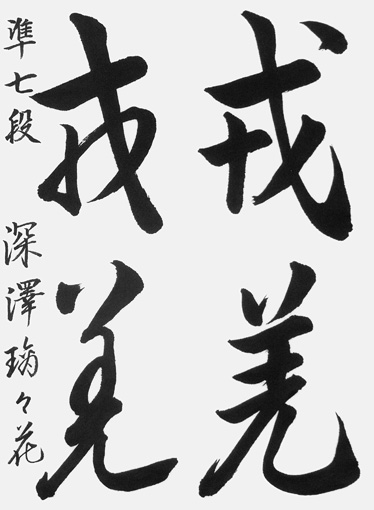 戎羌
戎羌
準七段 深澤璃々花